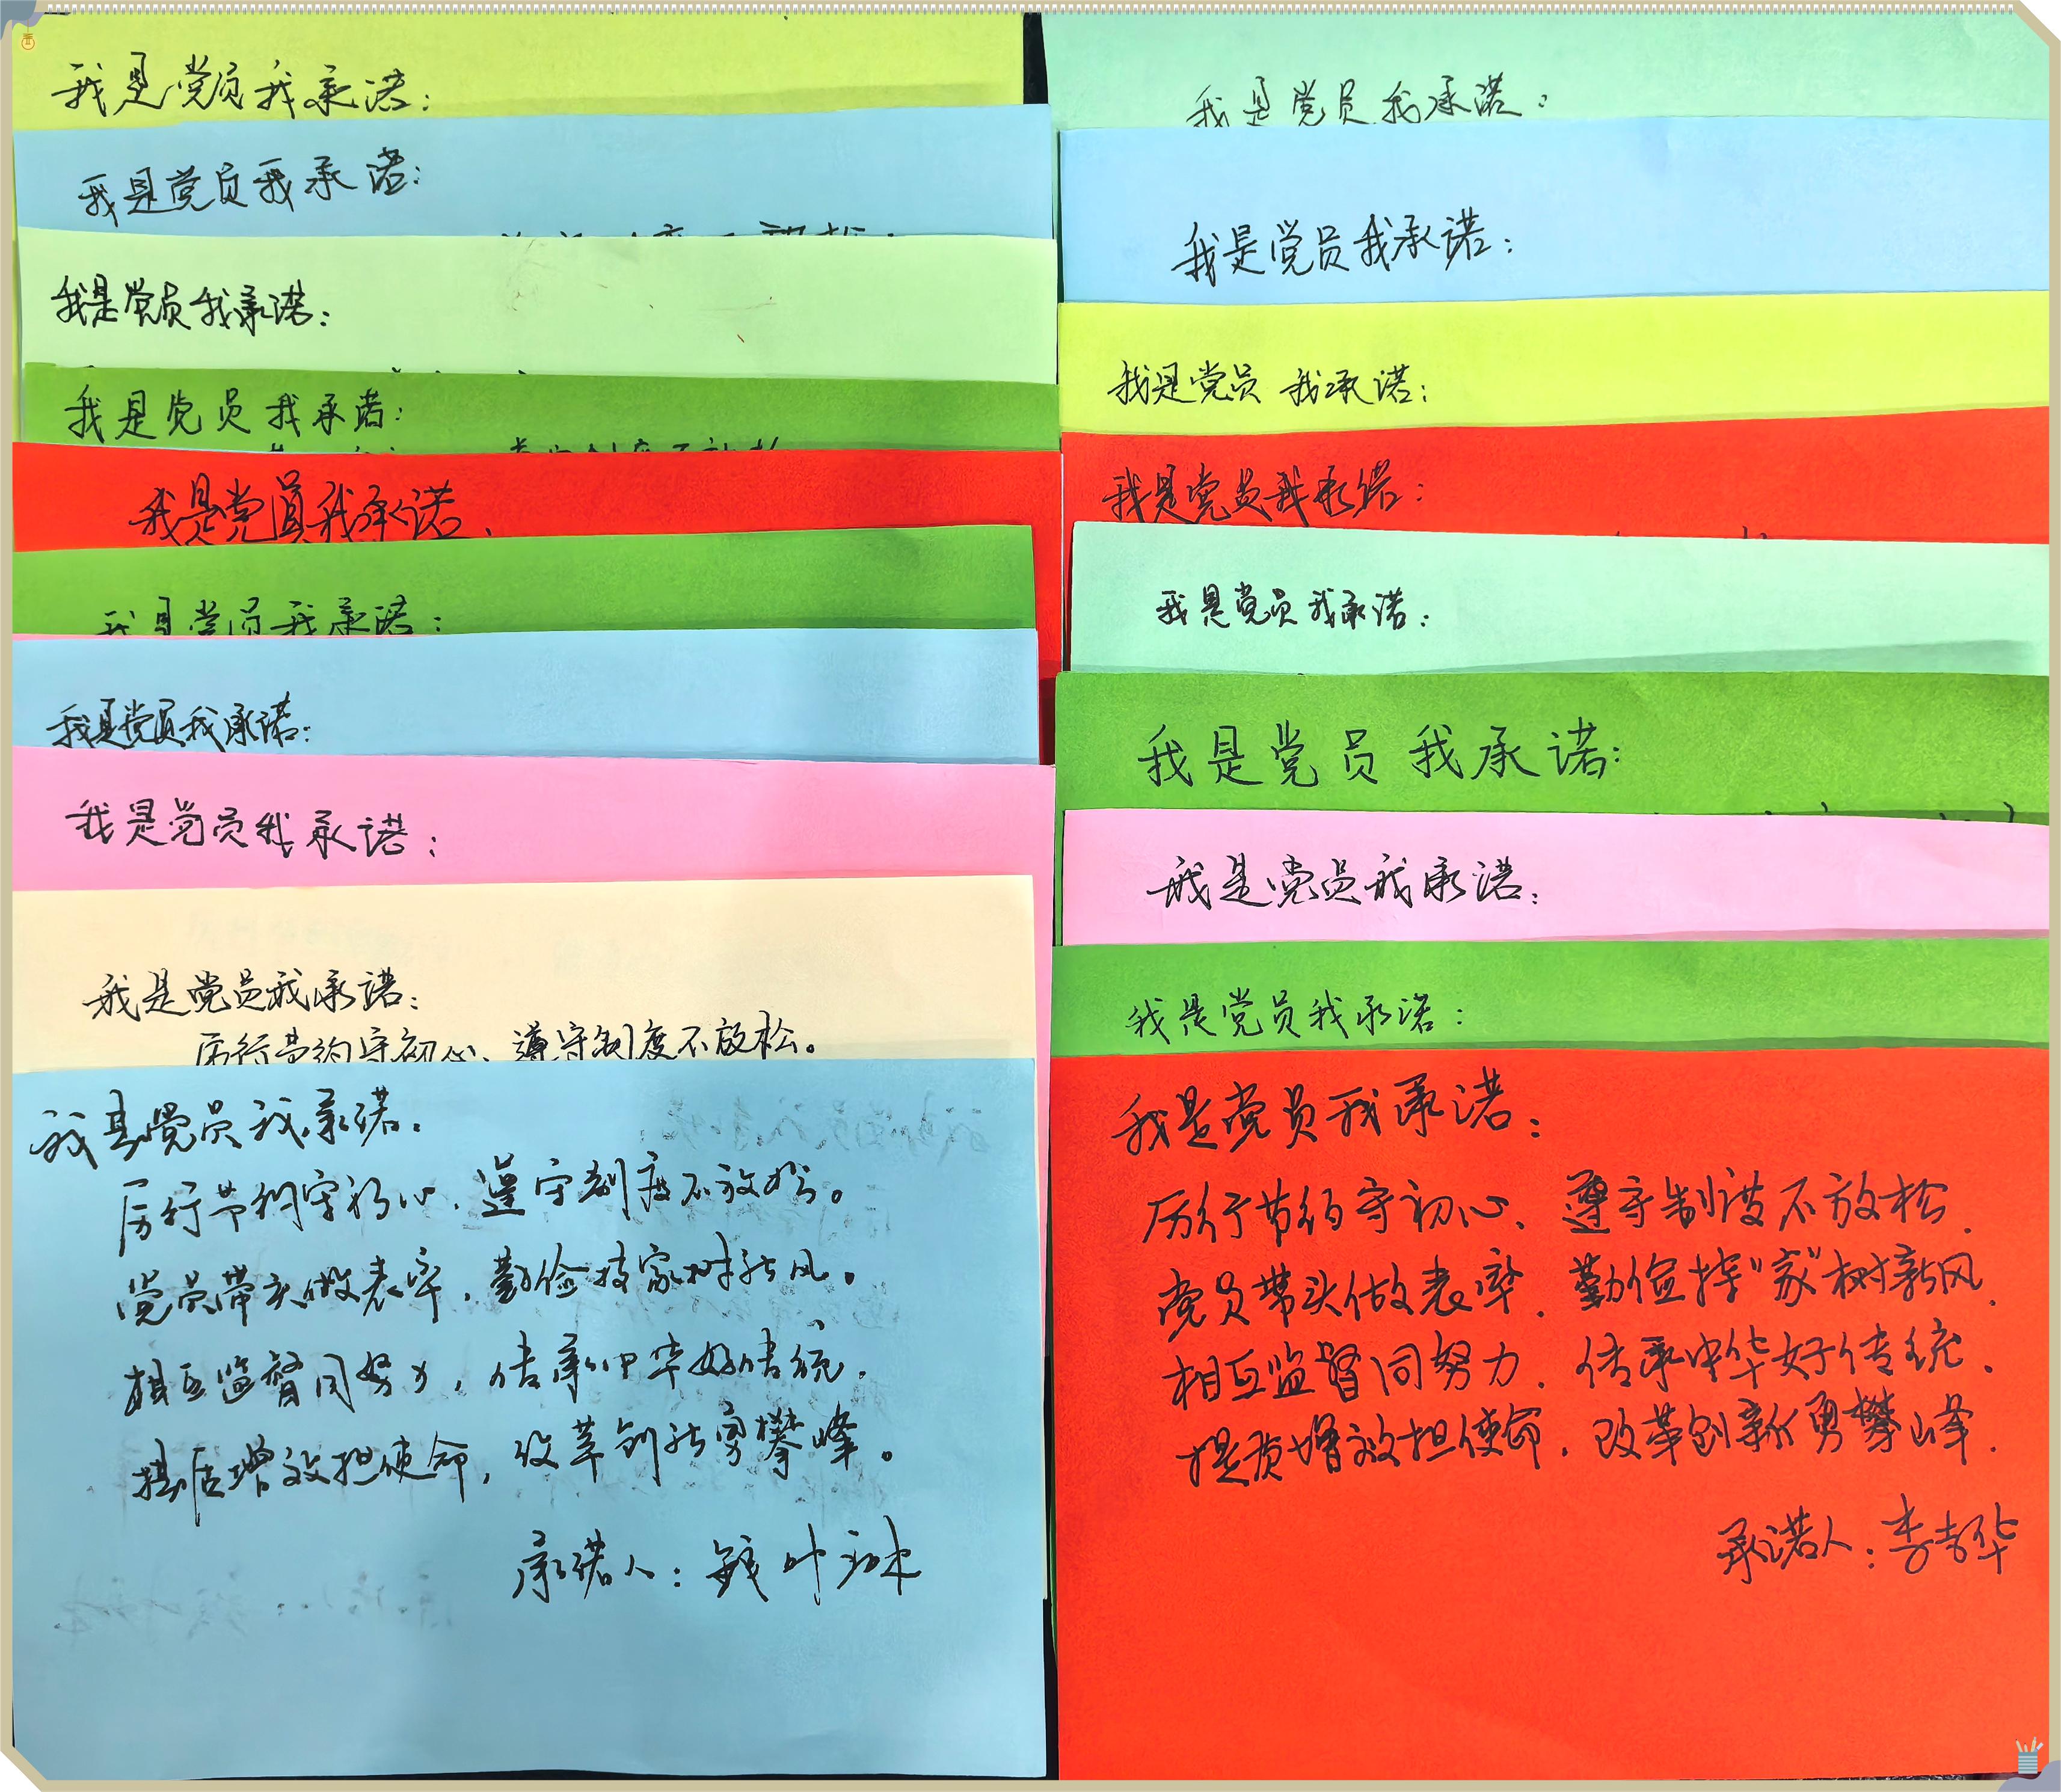 我是党员我承诺：
我是党员我承诺：
我是党员我承诺：
我是党员我承诺：
我是党员我承诺、
我是党员我承诺：
我是党员我承诺：
我是党员我承诺：
我是党员我承诺：
厉行节约守初心、遵守制度不放松。
我是党员我承诺：
厉行节约守初心，遵守制度不放松。
党员带头做表率，勤俭持家树新风。
相互监督同努力，传承中华好传统。
提质增效担使命，改革创新勇攀峰。
承诺人：钱叶
我是党员我承诺：
我是党员我承诺：
我是党员 我承诺：
我是党员我承诺：
我是党员我承诺：
我是党员 我承诺：
我是党员我承诺：
我是党员我承诺：
我是党员我承诺：
厉行节约守初心、遵守制度不放松、
党员带头做表率、勤俭持“家”树新风、
相互监督同努力、传承中华好传统、
提质增效担使命、改革创新勇攀峰、
承诺人：李志华